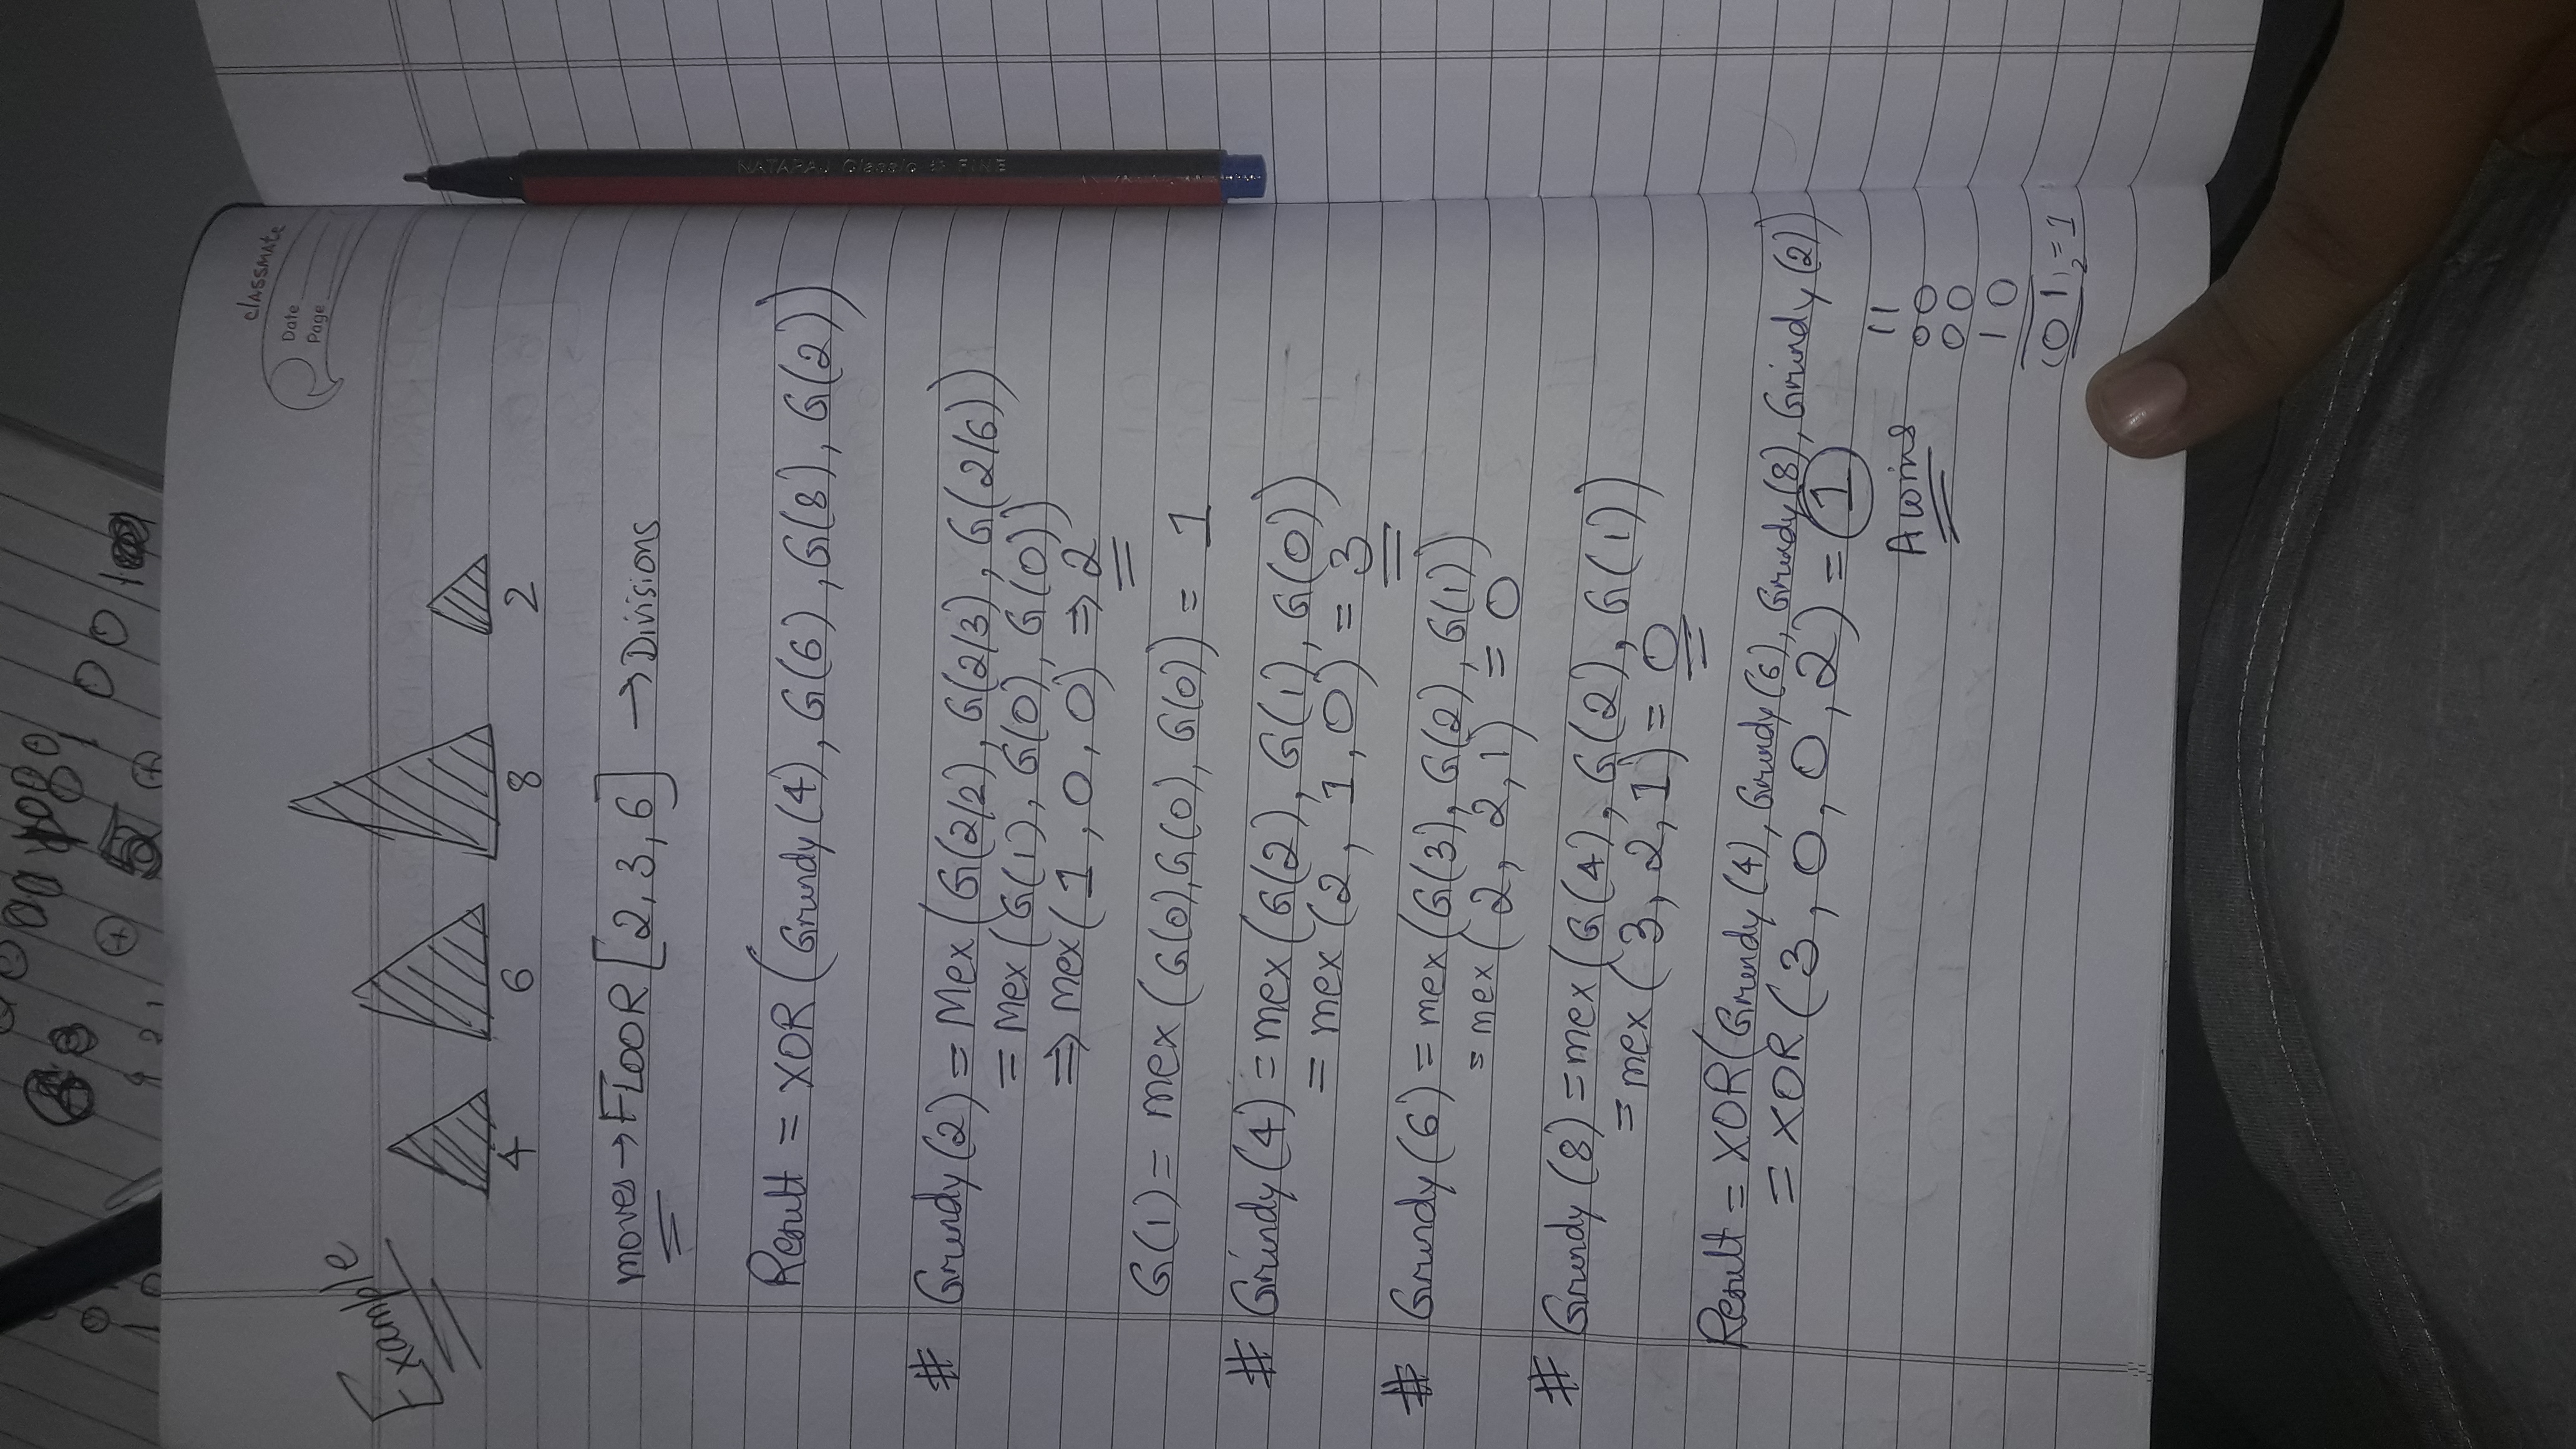 classmate
Date
Page
Example
4 6 8 2
moves → FLOOR [2, 3, 6] → Divisions
Result = XOR (Grundy (4), G(6), G(8), G(2))
# Grundy (2) = Mex (G(2/2), G(2/3), G(2/6))
= Mex (G(1), G(0), G(0))
⇒ Mex (1, 0, 0) ⇒ 2
G(1) = mex (G(0), G(0), G(0)) = 1
# Grundy (4) = mex (G(2), G(1), G(0))
= mex (2, 1, 0) = 3
# Grundy (6) = mex (G(3), G(2), G(1))
= mex (2, 2, 1) = 0
# Grundy (8) = mex (G(4), G(2), G(1))
= mex (3, 2, 1) = 0
Result = XOR (Grundy (4), Grundy (6), Grundy (8), Grundy (2))
= XOR (3, 0, 0, 2) = 1
A wins
11
00
00
10
(01)₂ = 1